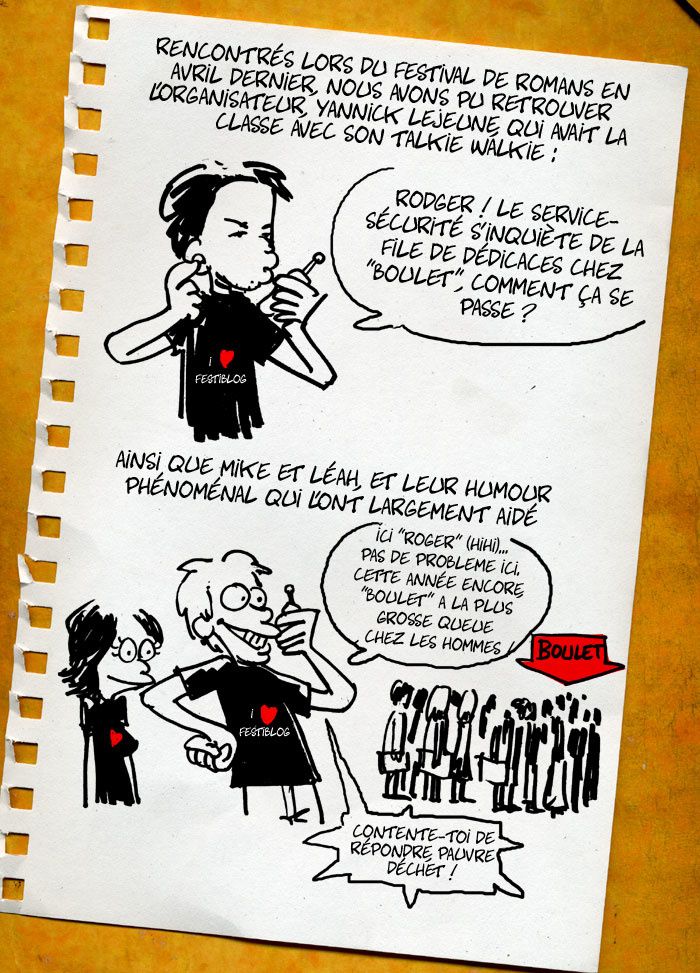 RENCONTRÉS LORS DU FESTIVAL DE ROMANS EN
AVRIL DERNIER, NOUS AVONS PU RETROUVER
L'ORGANISATEUR, YANNICK LEJEUNE, QUI AVAIT LA
CLASSE AVEC SON TALKIE WALKIE :
RODGER ! LE SERVICE-
SÉCURITÉ S'INQUIÈTE DE LA
FILE DE DÉDICACES CHEZ
"BOULET", COMMENT ÇA SE
PASSE ?
I ♥
FESTIBLOG
AINSI QUE MIKE ET LÉAH, ET LEUR HUMOUR
PHÉNOMÉNAL QUI L'ONT LARGEMENT AIDÉ
ICI "ROGER" (HIHI)...
PAS DE PROBLEME ICI,
CETTE ANNÉE ENCORE,
"BOULET" A LA PLUS
GROSSE QUEUE
CHEZ LES HOMMES !
BOULET
I ♥
FESTIBLOG
CONTENTE-TOI DE
RÉPONDRE, PAUVRE
DÉCHET !